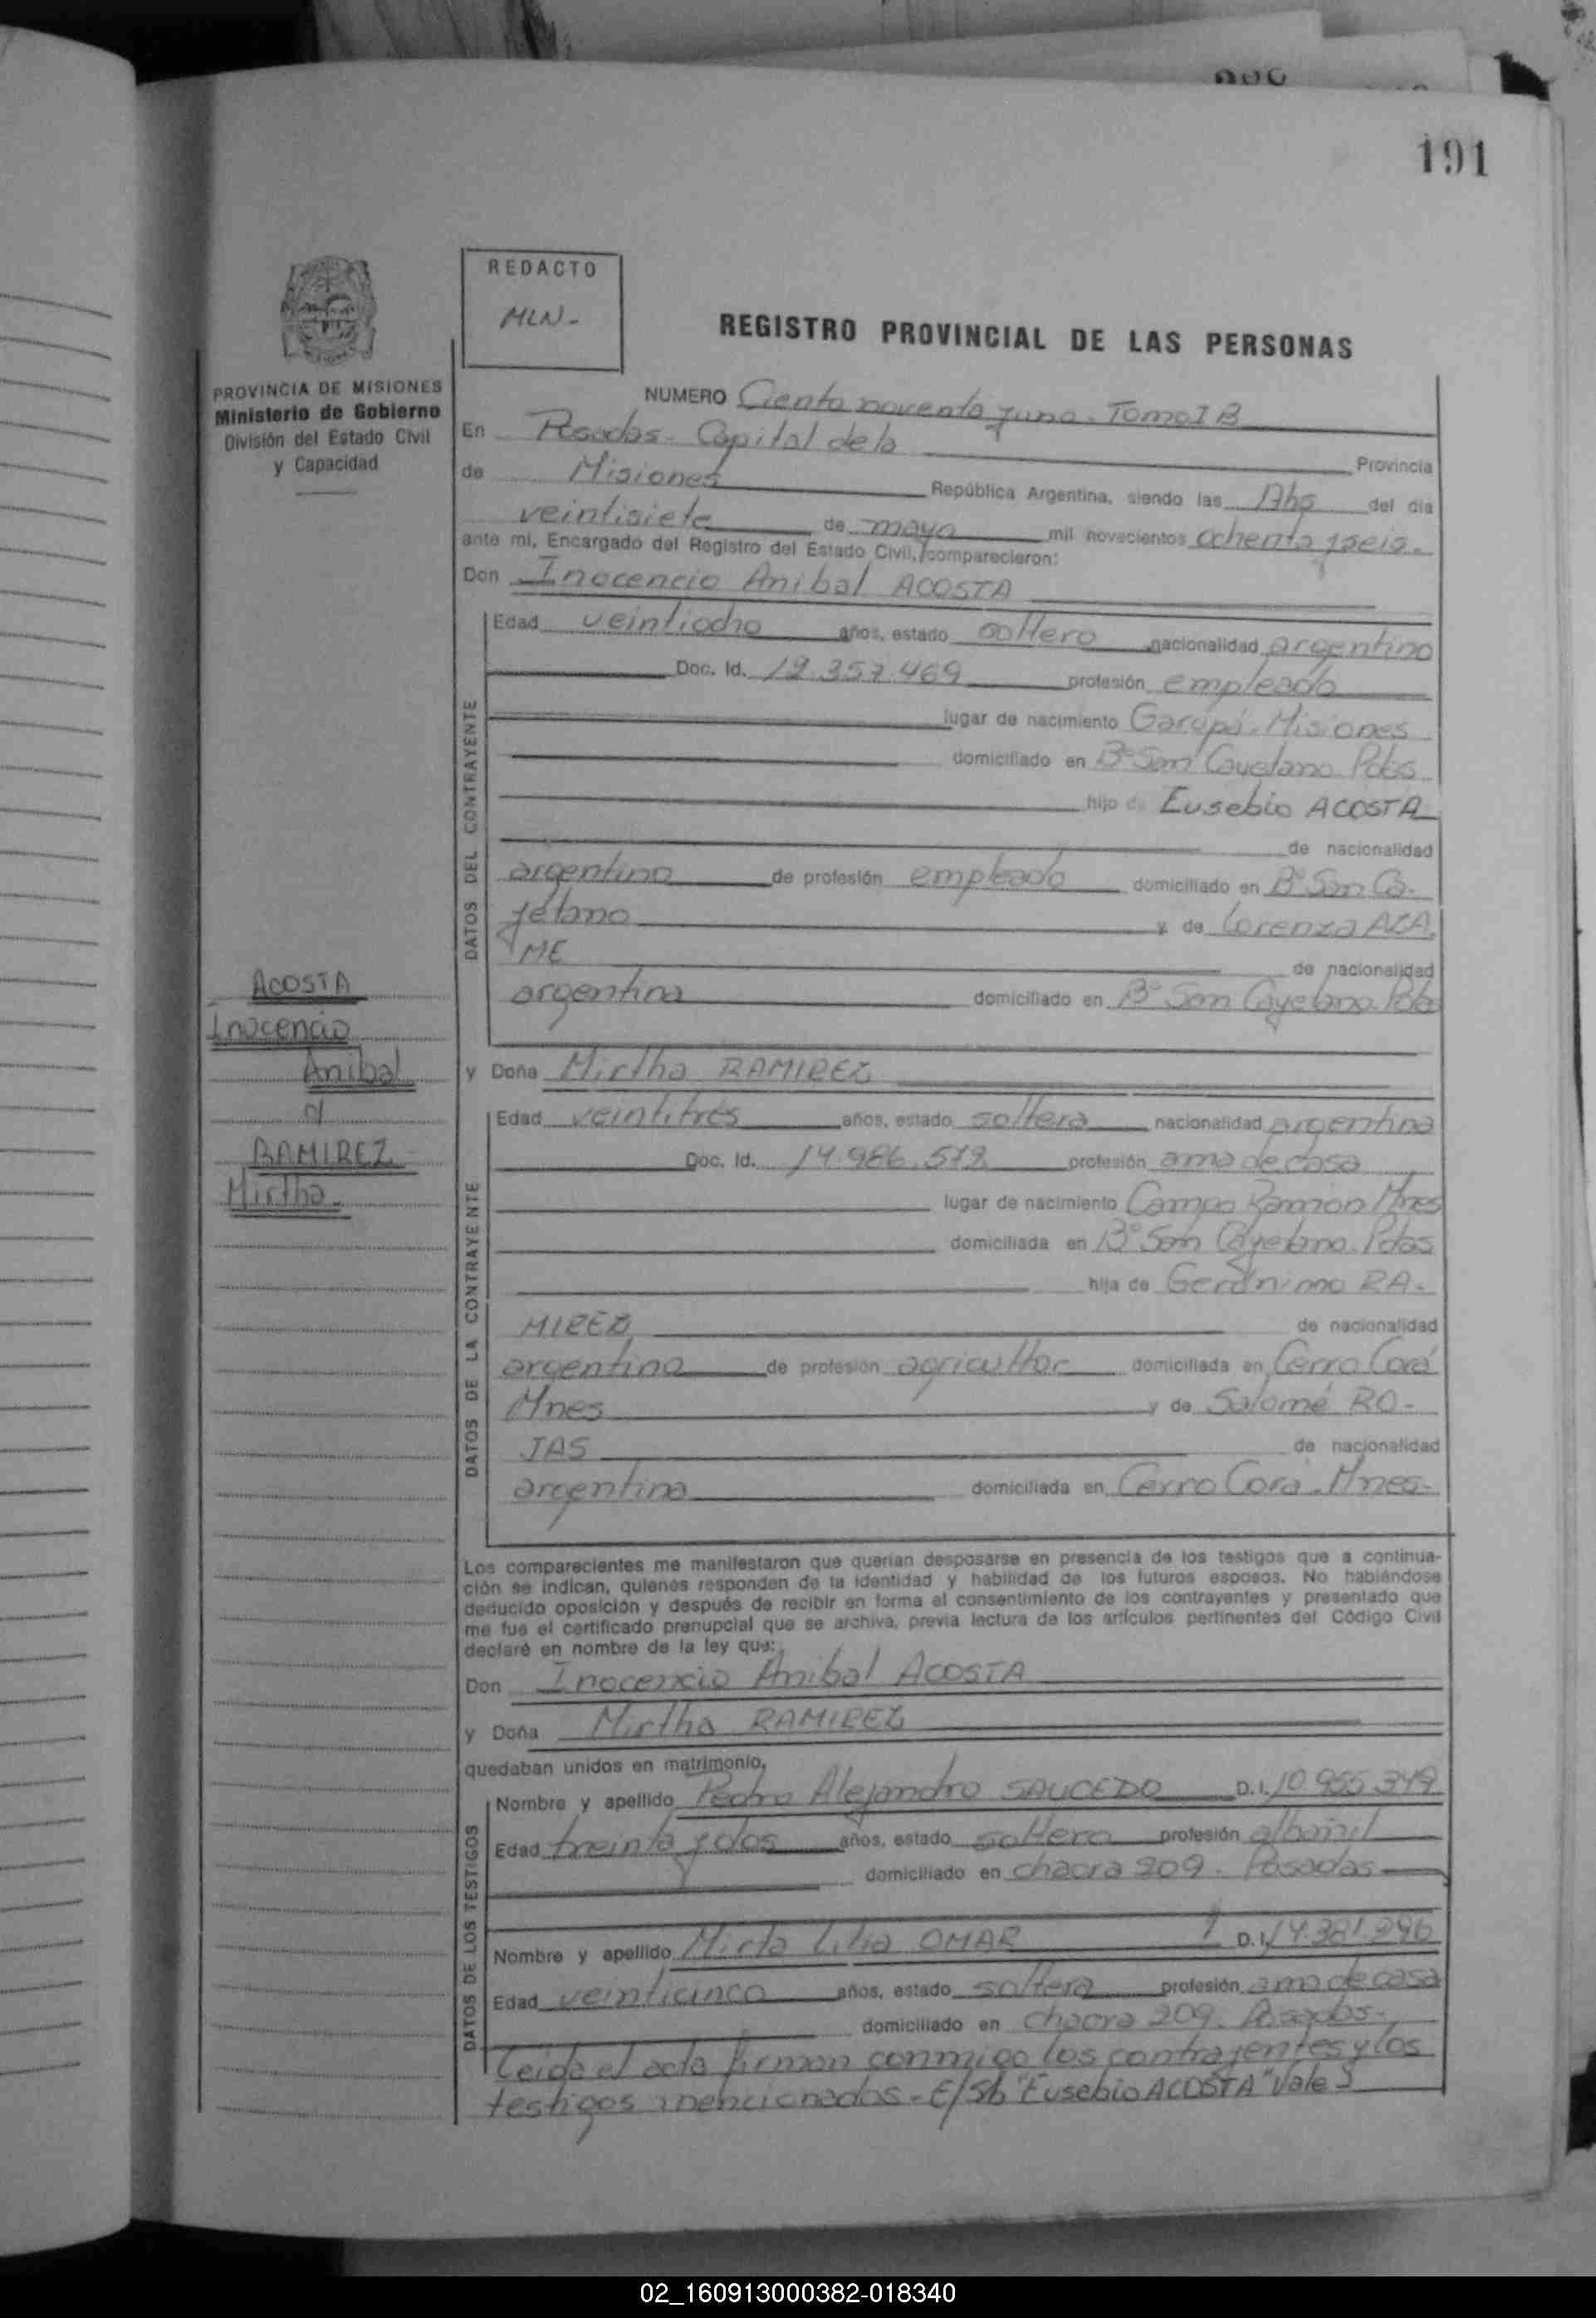 191
REDACTO
MLN-
REGISTRO PROVINCIAL DE LAS PERSONAS
PROVINCIA DE MISIONES
Ministerio de Gobierno
División del Estado Civil
y Capacidad
NUMERO Ciento noventa y uno. Tomo I B
En Posadas. Capital de la Provincia
de Misiones República Argentina, siendo las del dia
veintisiete de mayo mil novecientos ochenta y seis.
ante mi, Encargado del Registro del Estado Civil, comparecieron:
Don Inocencio Anibal ACOSTA
DATOS DEL CONTRAYENTE
Edad veintiocho años, estado soltero nacionalidad argentino
Doc. Id. profesión empleado
lugar de nacimiento Garupá. Misiones
domiciliado en Bº San Cayetano Pdas
hijo de Eusebio ACOSTA
de nacionalidad
argentino de profesión empleado domiciliado en Bº San Ca-
yetano y de Lorenza
ME de nacionalidad
argentina domiciliado en Bº San Cayetano. Pdas
ACOSTA
Inocencio
Anibal
RAMIREZ
Mirtha
y Doña Mirtha RAMIREZ
DATOS DE LA CONTRAYENTE
Edad veintitrés años, estado soltera nacionalidad argentina
Doc. Id. profesión ama de casa
lugar de nacimiento Campo Ramón Mnes
domiciliada en Bº San Cayetano. Pdas
hija de Gerónimo RA-
MIREZ de nacionalidad
argentino de profesión agricultor domiciliada en Cerro Corá
Mnes y de Salomé RO-
JAS de nacionalidad
argentina domiciliada en Cerro Corá. Mnes-
Los comparecientes me manifestaron que querían desposarse en presencia de los testigos que a continua-
ción se indican, quienes responden de la identidad y habilidad de los futuros esposos. No habiéndose
deducido oposición y después de recibir en forma el consentimiento de los contrayentes y presentado que
me fue el certificado prenupcial que se archiva, previa lectura de los artículos pertinentes del Código Civil
declaré en nombre de la ley que:
Don Inocencio Anibal ACOSTA
y Doña Mirtha RAMIREZ
quedaban unidos en matrimonio,
DATOS DE LOS TESTIGOS
Nombre y apellido Pedro Alejandro SAUCEDO D.I. 10.955.349
Edad treinta y dos años, estado soltero profesión albañil
domiciliado en chacra 209. Posadas
Nombre y apellido Mirta Lilia OMAR D.I. 14.381.296
Edad veinticinco años, estado soltera profesión ama de casa
domiciliado en chacra 209. Posadas-
Leida el acta firman conmigo los contrayentes y los
testigos mencionados - E/Sb "Eusebio ACOSTA" Vale
02_160913000382-018340